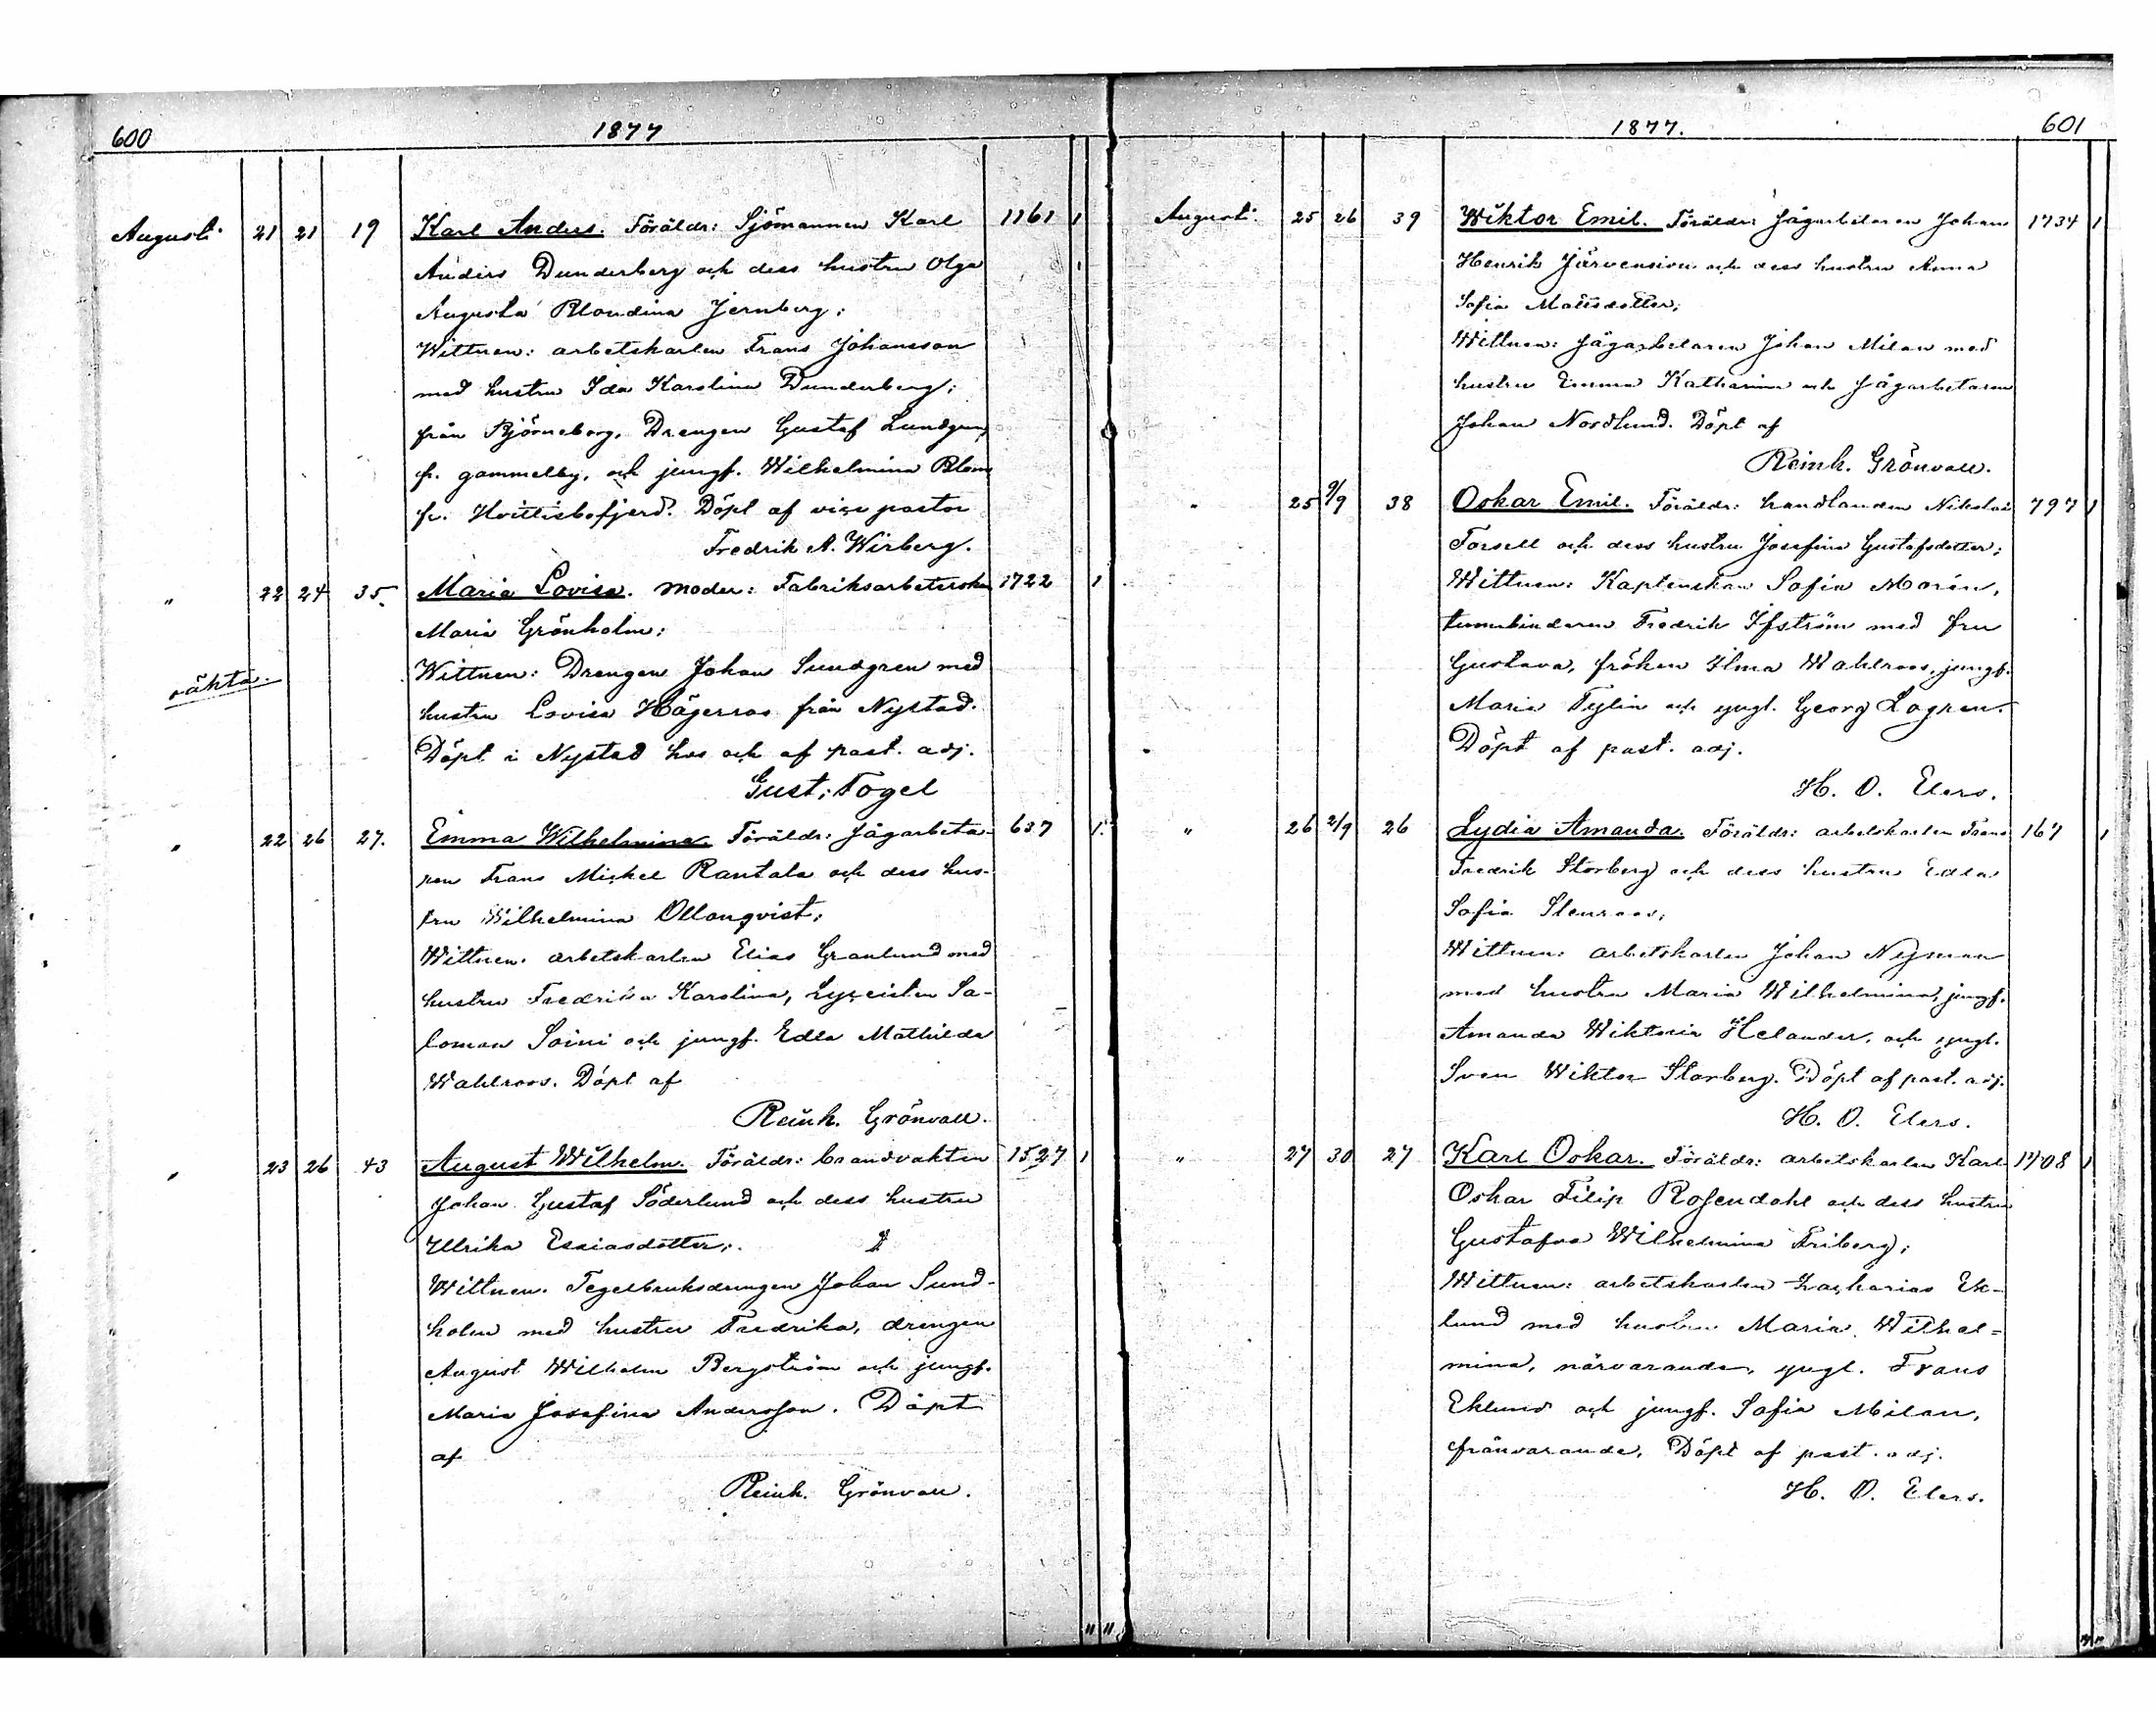 600 1877
Augusti 21 21 19 Karl Anders. Föräldr: Sjömannen Karl 1161 1
Anders Dunderberg och dess hustru Olga 1
Augusta Blondina Jernberg;
Wittnen: arbetskarlen Frans Johansson
med hustru Ida Karolina Dunderberg;
från Björneborg, Drengen Gustaf Lundgren,
fr. gammelby, och jungf. Wilhelmina Blom
fr. Hvittisbofjerd. Döpt af vice pastor
Fredrik A. Wirberg.
" 22 24 35. Maria Lovisa. Moder: Fabriksarbeterskan 1722 1
Maria Grönholm;
oäkta. Wittnen: Drengen Johan Sundgren med
hustru Lovisa Hägerroos från Nystad.
Döpt i Nystad hos och af past. adj.
Gust. Fogel
" 22 26 27. Emma Wilhelmina. Föräldr: Sågarbeta- 637 1.
ren Frans Mickel Rantala och dess hus-
tru Wilhelmina Ollonqvist;
Wittnen: arbetskarlen Elias Granlund med
hustru Fredrika Karolina, Lyceisten Sa-
loman Soini och jungf. Edla Mathilda
Wahlroos. Döpt af
Reinh. Grönvall.
" 23 26 43 August Wilhelm. Föräldr: brandvakten 1527 1
Johan Gustaf Söderlund och dess hustru
Ulrika Esaiasdotter;
Wittnen. Tegelbruksdrengen Johan Sund-
holm med hustru Fredrika, drengen
August Wilhelm Bergström och jungf.
Maria Josefina Andersson. Döpt
af
Reinh. Grönvall.
" "
1877. 601
Augusti 25 26 39 Wiktor Emil. Föräldr: Sågarbetaren Johan 1734 1
Henrik Järvensivu och dess hustru Anna
Sofia Mattsdotter;
Wittnen: Sågarbetaren Johan Milan med
hustru Emma Katharina och Sågarbetaren
Johan Nordlund. Döpt af
Reinh. Grönvall.
" 25 9/9 38 Oskar Emil. Föräldr: handlanden Nikolai 797 1
Forsell och dess hustru Josefina Gustafsdotter;
Wittnen: Kaptenskan Sofia Morén,
tunnbindaren Fredrik Ifström med fru
Gustava, fröken Ilma Wahlroos, jungf.
Maria Fylin och yngl. Georg Lagren.
Döpt af past. adj.
H. O. Elers.
" 26 2/9 26 Lydia Amanda. Föräldr: arbetskarlen Frans 167 1
Fredrik Storberg och dess hustru Edla
Sofia Stenroos;
Wittnen: arbetskarlen Johan Nyman
med hustru Maria Wilhelmina, jungf.
Amanda Wiktoria Helander, och yngl.
Sven Wiktor Storberg. Döpt af past. adj.
H. O. Elers.
" 27 30 27 Karl Oskar. Föräldr: arbetskarlen Karl 1708 1
Oskar Filip Rosendahl och dess hustru
Gustafva Wilhelmina Friberg;
Wittnen: arbetskarlen Zacharias Ek-
lund med hustru Maria Wilhel=
mina, närvarande, yngl. Frans
Eklund och jungf. Sofia Milan,
frånvarande, Döpt af past. adj.
H. O. Elers.
" "